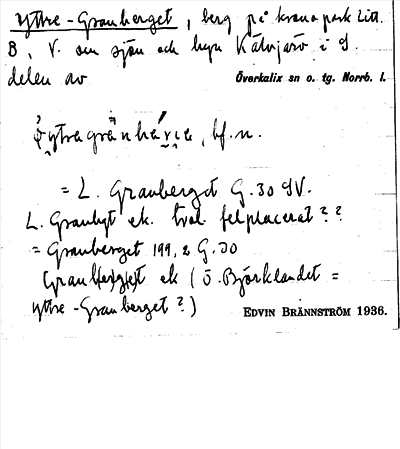 Yttre-Granberget, berg på kronopark Litt.
B, V. om sjön och byn Kälvjärv i S.
delen av Överkalix sn o. tg. Norrb. l.
bf. n.
= L. Granberget G.30 SV.
L. Granbgt ek. trol. felplacerat??
= Granberget 199,2 G.30
Granberget ek (Ö. Björklandet =
Yttre-Granberget?)
EDVIN BRÄNNSTRÖM 1936.